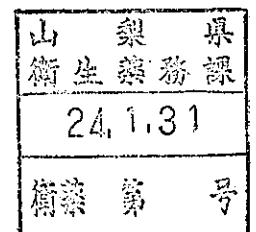 山梨県
衛生薬務課
24.1.31
衛薬第 号